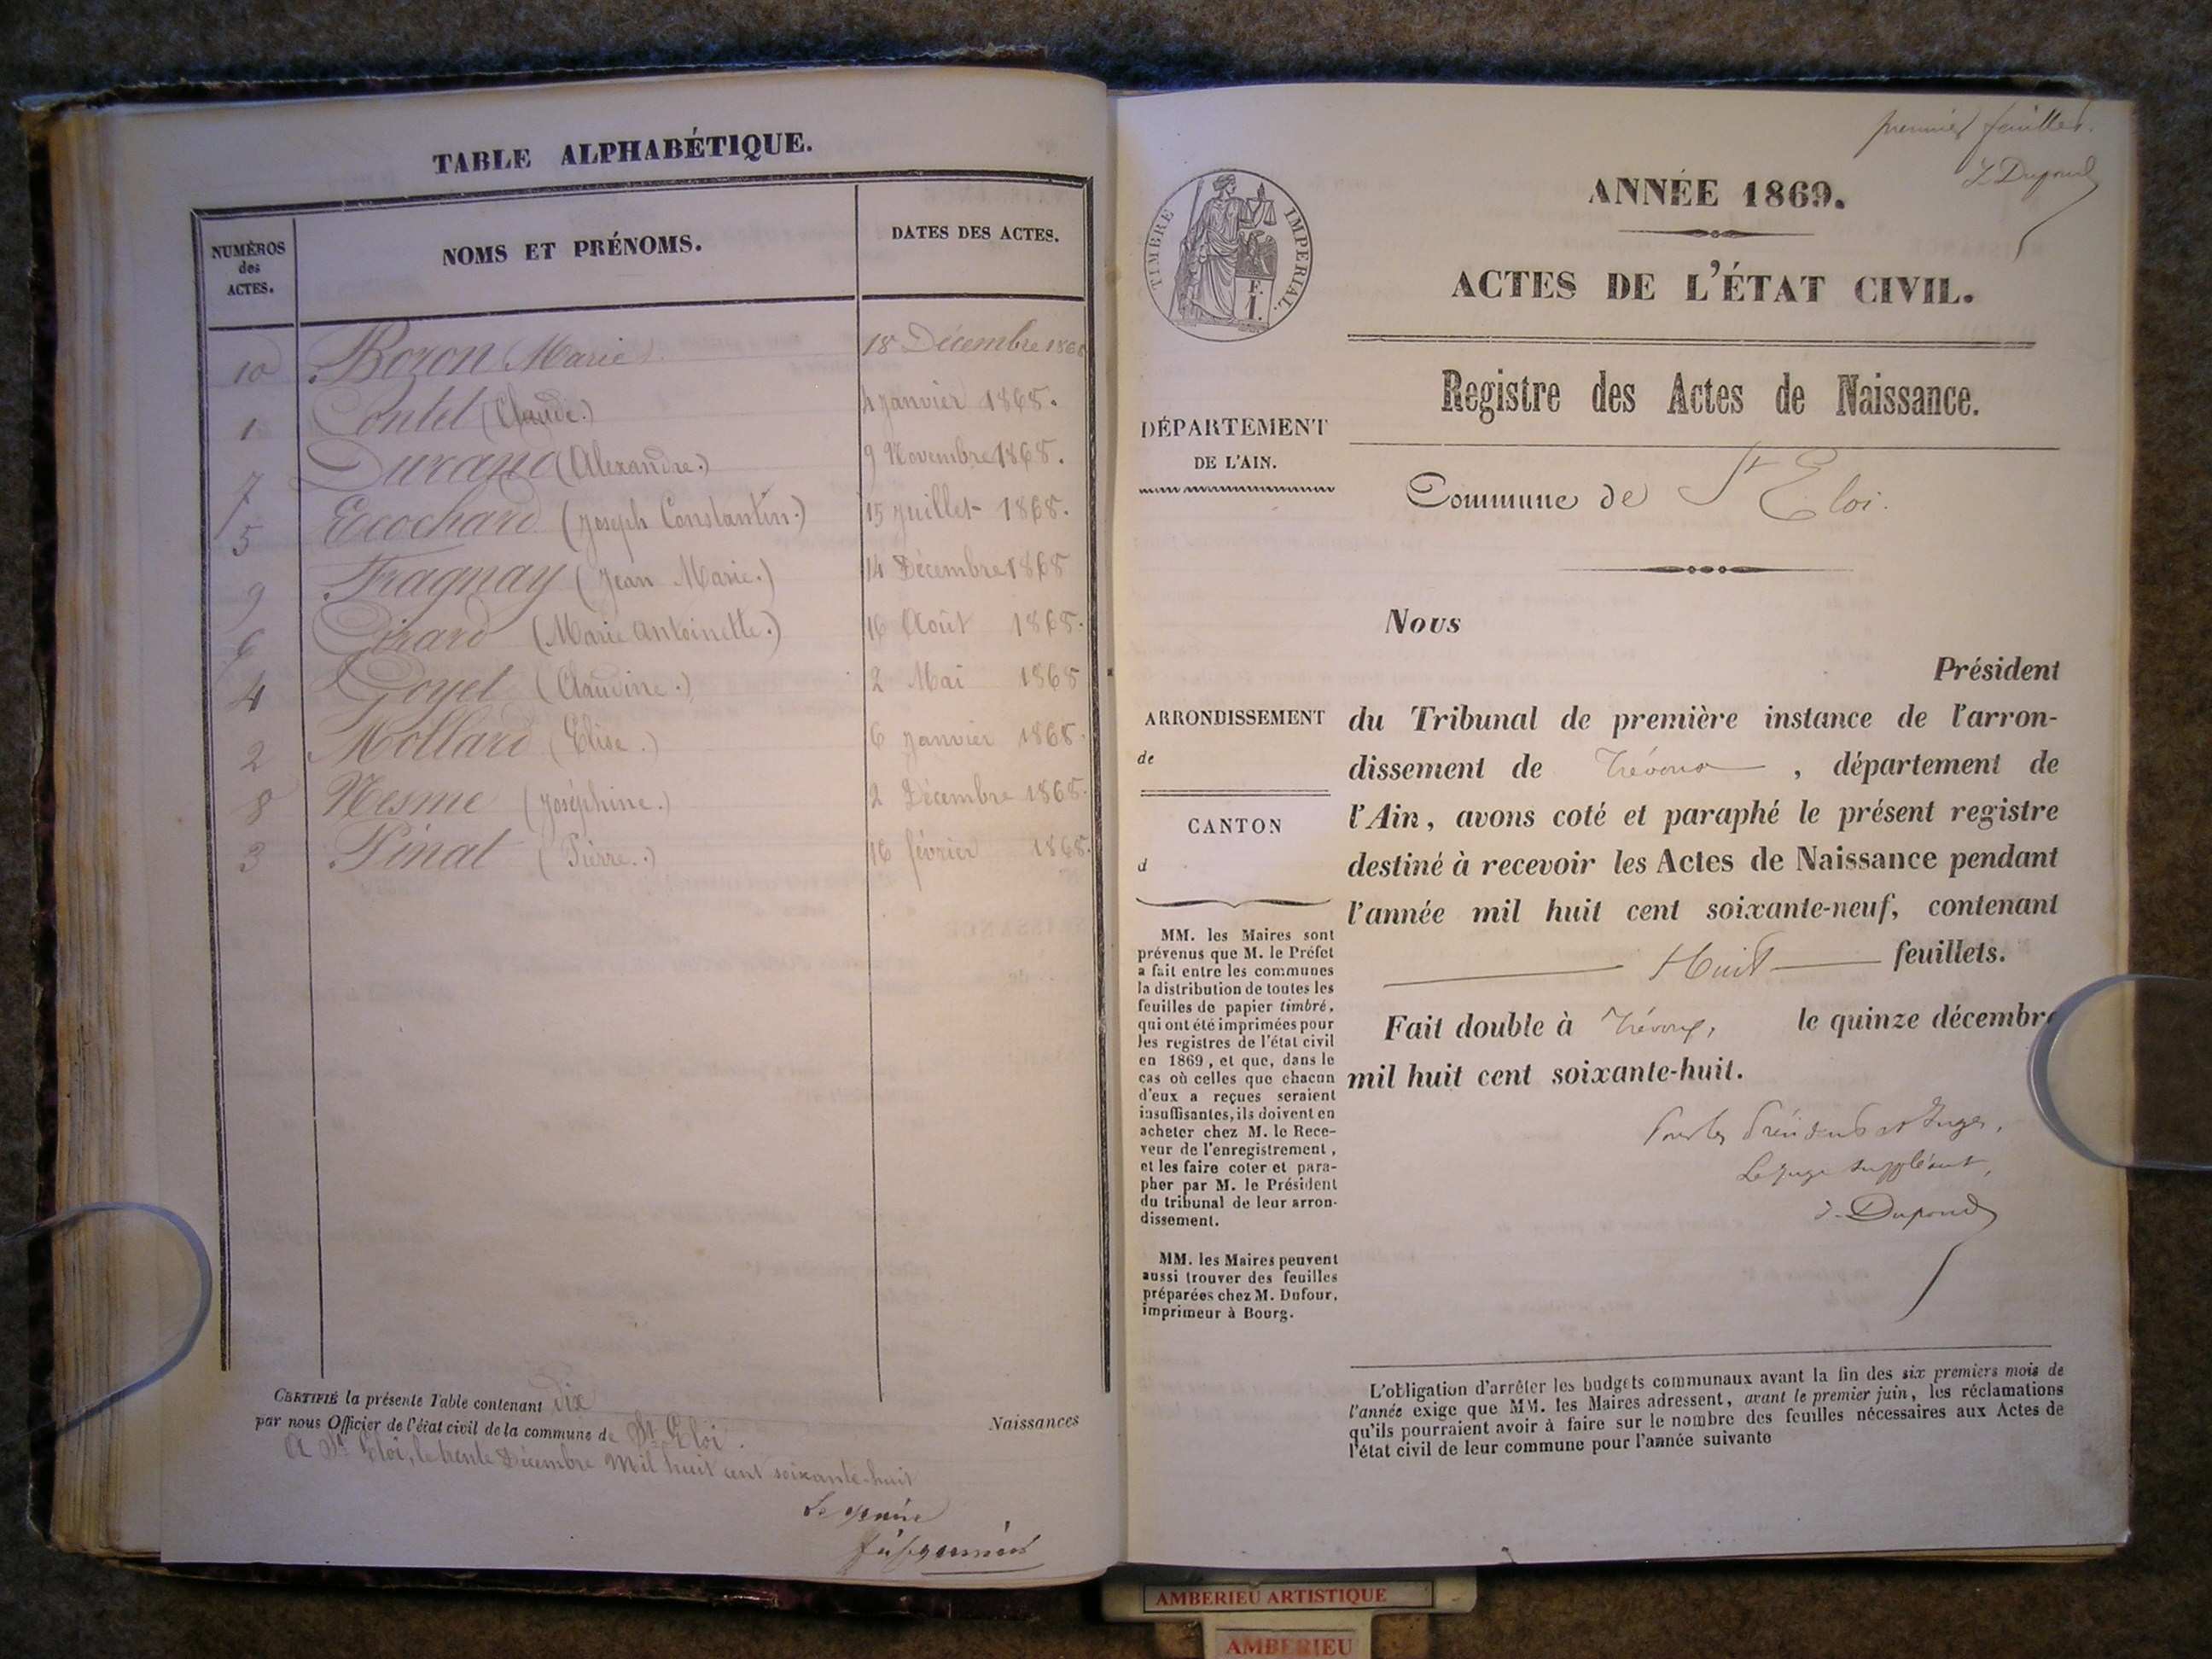 TABLE ALPHABÉTIQUE.
NUMÉROS des ACTES. NOMS ET PRÉNOMS. DATES DES ACTES.
10 Bozon (Marie). 18 Décembre 1868
1 Contet (Claude.) 4 Janvier 1868.
7 Durand (Alexandre.) 9 Novembre 1868.
5 Ecochard (Joseph Constantin.) 15 Juillet 1868.
9 Fragnay (Jean Marie.) 14 Décembre 1868
6 Girard (Marie Antoinette.) 16 Août 1868.
4 Goyet (Claudine.) 2 Mai 1868
2 Mollard (Elise.) 6 Janvier 1868.
8 Nesme (Joséphine.) 2 Décembre 1868.
3 Pinat (Pierre.) 16 février 1868.
CERTIFIÉ la présente Table contenant dix
Naissances
par nous Officier de l'état civil de la commune de St Eloi.
A St Eloi, le trente Décembre Mil huit cent soixante-huit
Le Maire
premier feuillet.
J. Dupond
TIMBRE IMPÉRIAL.
ANNÉE 1869.
ACTES DE L'ÉTAT CIVIL.
Registre des Actes de Naissance.
DÉPARTEMENT
DE L'AIN.
Commune de St Eloi.
Nous
Président
ARRONDISSEMENT
de
CANTON
d
du Tribunal de première instance de l'arron-
dissement de Trévoux, département de
l'Ain, avons coté et paraphé le présent registre
destiné à recevoir les Actes de Naissance pendant
l'année mil huit cent soixante-neuf, contenant
Huit feuillets.
Fait double à Trévoux, le quinze décembre
mil huit cent soixante-huit.
Pour les Présidents et Juges,
Le juge suppléant,
J. Dupond
MM. les Maires sont
prévenus que M. le Préfet
a fait entre les communes
la distribution de toutes les
feuilles de papier timbré,
qui ont été imprimées pour
les registres de l'état civil
en 1869, et que, dans le
cas où celles que chacun
d'eux a reçues seraient
insuffisantes, ils doivent en
acheter chez M. le Rece-
veur de l'enregistrement,
et les faire coter et para-
pher par M. le Président
du tribunal de leur arron-
dissement.
MM. les Maires peuvent
aussi trouver des feuilles
préparées chez M. Dufour,
imprimeur à Bourg.
L'obligation d'arrêter les budgets communaux avant la fin des six premiers mois de
l'année exige que MM. les Maires adressent, avant le premier juin, les réclamations
qu'ils pourraient avoir à faire sur le nombre des feuilles nécessaires aux Actes de
l'état civil de leur commune pour l'année suivante
AMBERIEU ARTISTIQUE
AMBERIEU